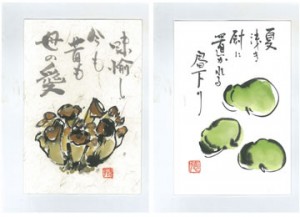 味愉し
今も
昔も
母の愛
夏
浅き
尉に
置かれる
昼下り